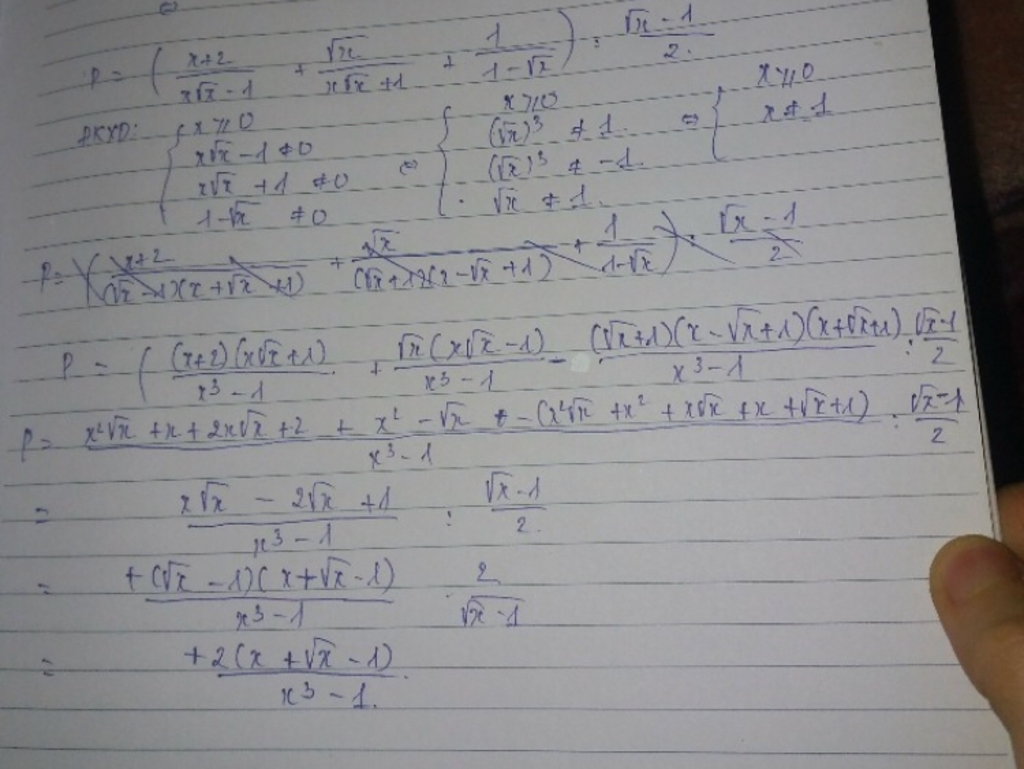 ⇔
P = ( x+2 / x√x - 1 + √x / x√x + 1 + 1 / 1 - √x ) : √x - 1 / 2
ĐKXĐ: { x ⩾ 0 ; x√x - 1 ≠ 0 ; x√x + 1 ≠ 0 ; 1 - √x ≠ 0 ⇔ { x ⩾ 0 ; (√x)³ ≠ 1 ; (√x)³ ≠ -1 ; √x ≠ 1 ⇔ { x ⩾ 0 ; x ≠ 1
P = ( x+2 / (√x - 1)(x + √x + 1) + √x / (√x + 1)(x - √x + 1) + 1 / 1-√x ) : √x - 1 / 2
P = ( (x+2)(x√x+1) / x³ - 1 + √x(x√x - 1) / x³ - 1 - (√x+1)(x - √x+1)(x+√x+1) / x³ - 1 : √x-1 / 2
P = x²√x + x + 2x√x + 2 + x² - √x - (x²√x + x² + x√x + x + √x + 1) / x³ - 1 : √x-1 / 2
= x√x - 2√x + 1 / x³ - 1 : √x-1 / 2
= +(√x - 1)(x+√x - 1) / x³ - 1 . 2 / √x - 1
= +2(x + √x - 1) / x³ - 1.